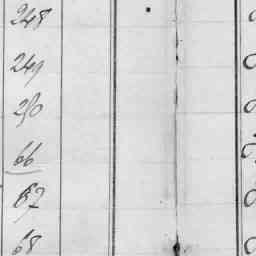 248
249
250
66
67
68